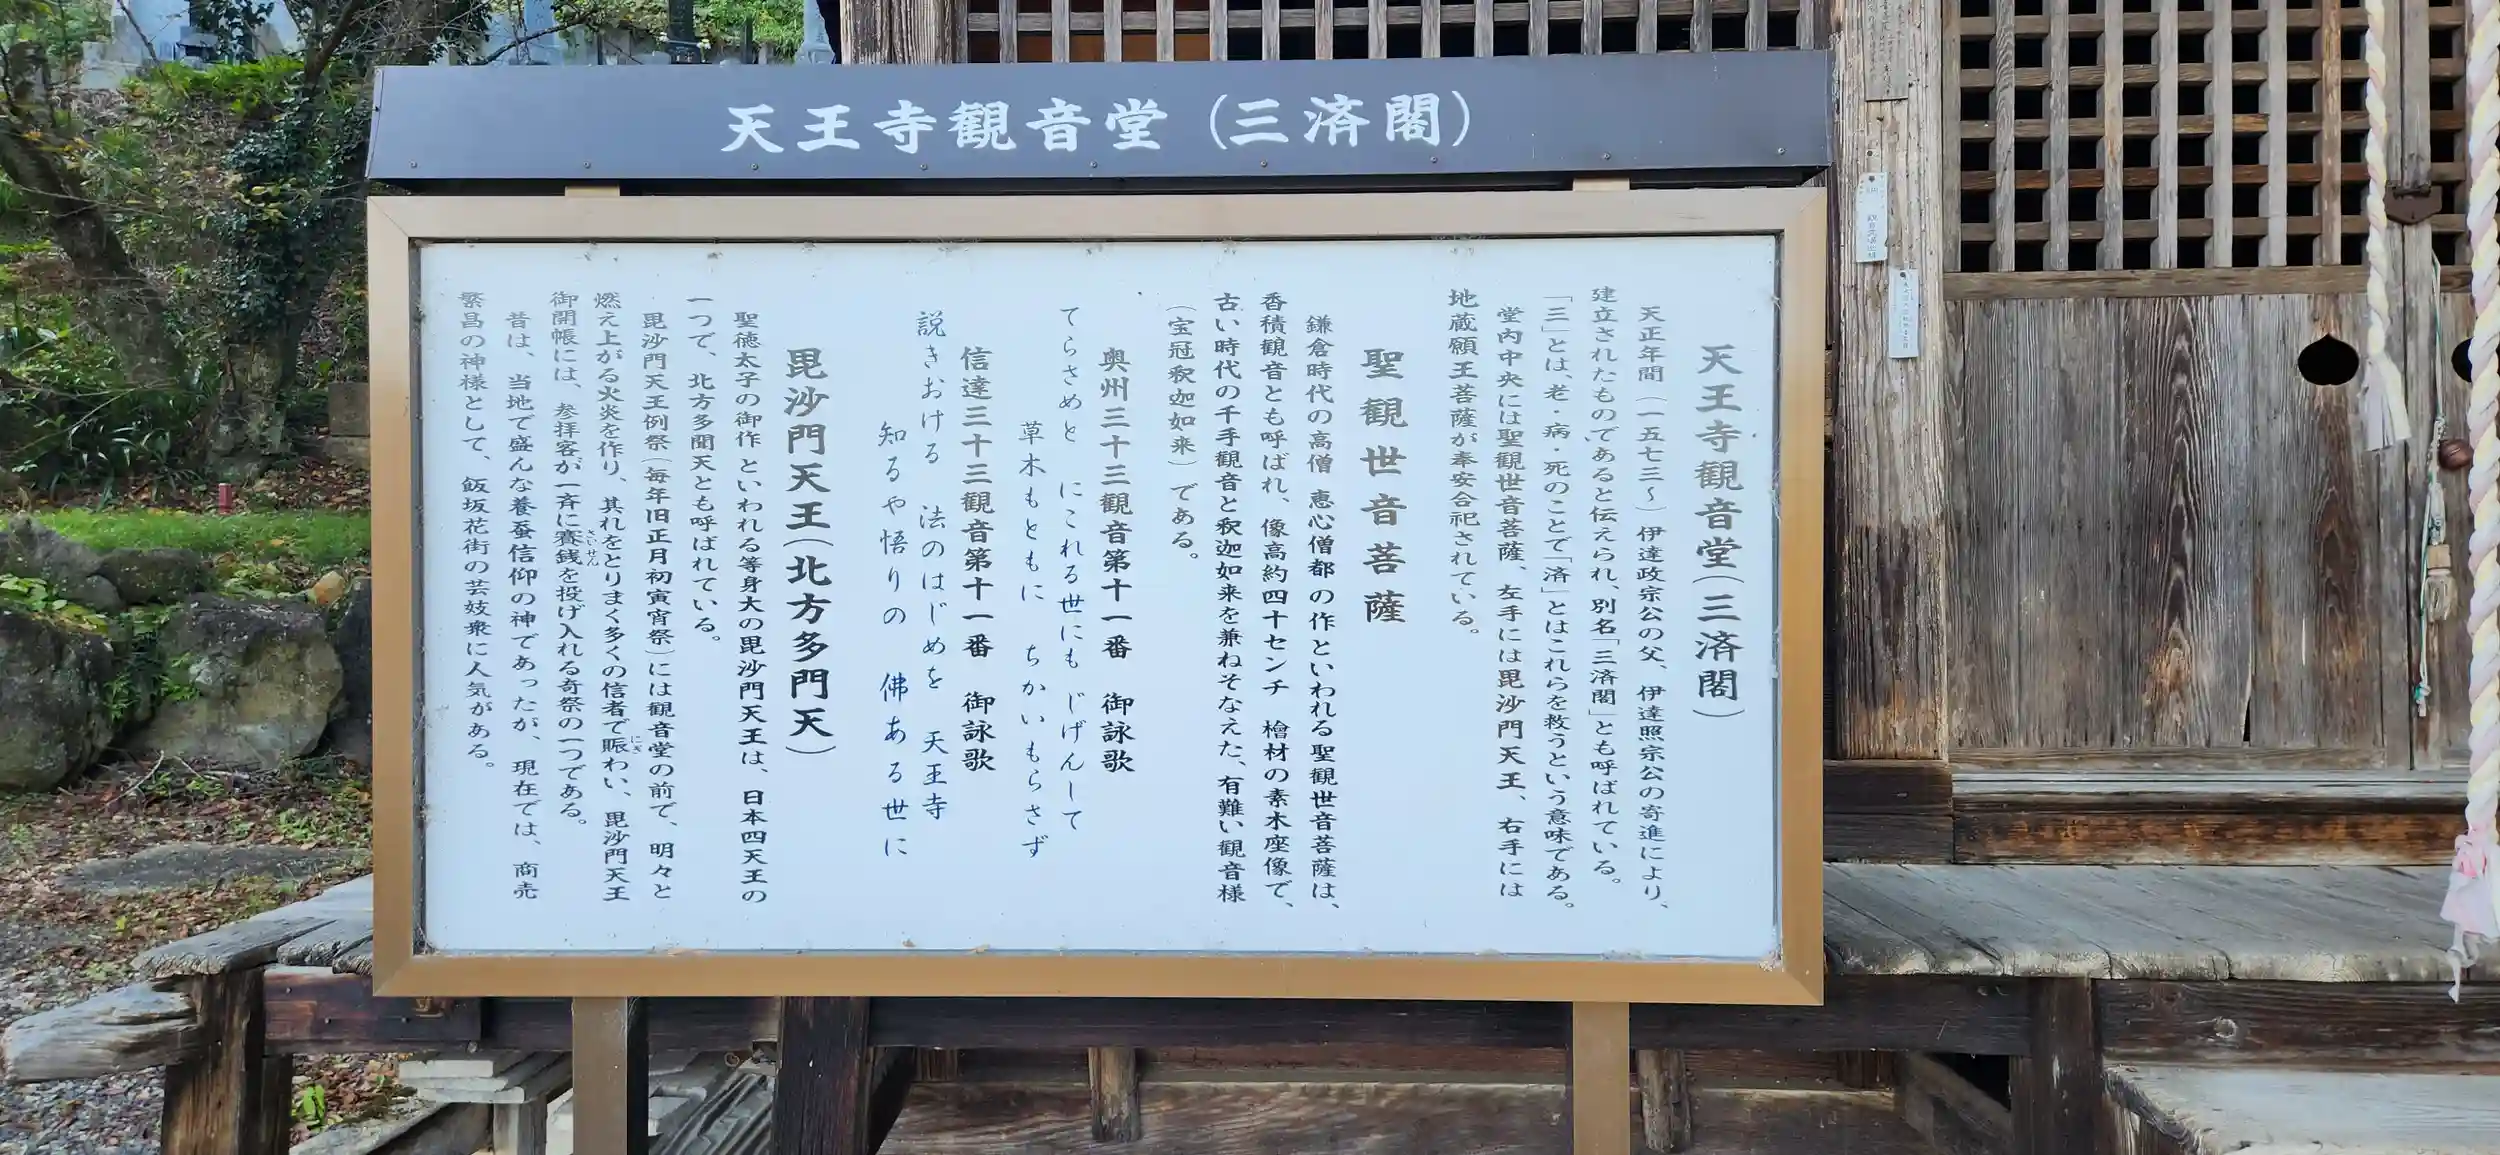 天王寺観音堂（三済閣）
天王寺観音堂（三済閣）
天正年間（一五七三〜）伊達政宗公の父、伊達照宗公の寄進により、
建立されたものであると伝えられ、別名「三済閣」とも呼ばれている。
「三」とは、老・病・死のことで「済」とはこれらを救うという意味である。
堂内中央には聖観世音菩薩、左手には毘沙門天王、右手には
地蔵願王菩薩が奉安合祀されている。
聖観世音菩薩
鎌倉時代の高僧 恵心僧都の作といわれる聖観世音菩薩は、
香積観音とも呼ばれ、像高約四十センチ 檜材の素木座像で、
古い時代の千手観音と釈迦如来を兼ねそなえた、有難い観音様
（宝冠釈迦如来）である。
奥州三十三観音第十一番 御詠歌
てらさめと にこれる世にも じげんして
草木もともに ちかいもらさず
信達三十三観音第十一番 御詠歌
説きおける 法のはじめを 天王寺
知るや悟りの 佛ある世に
毘沙門天王（北方多門天）
聖徳太子の御作といわれる等身大の毘沙門天王は、日本四天王の
一つで、北方多聞天とも呼ばれている。
毘沙門天王例祭（毎年旧正月初寅宵祭）には観音堂の前で、明々と
燃え上がる火炎を作り、其れをとりまく多くの信者で賑わい、毘沙門天王
にぎ
御開帳には、参拝客が一斉に賽銭を投げ入れる奇祭の一つである。
さいせん
昔は、当地で盛んな養蚕信仰の神であったが、現在では、商売
繁昌の神様として、飯坂花街の芸妓衆に人気がある。